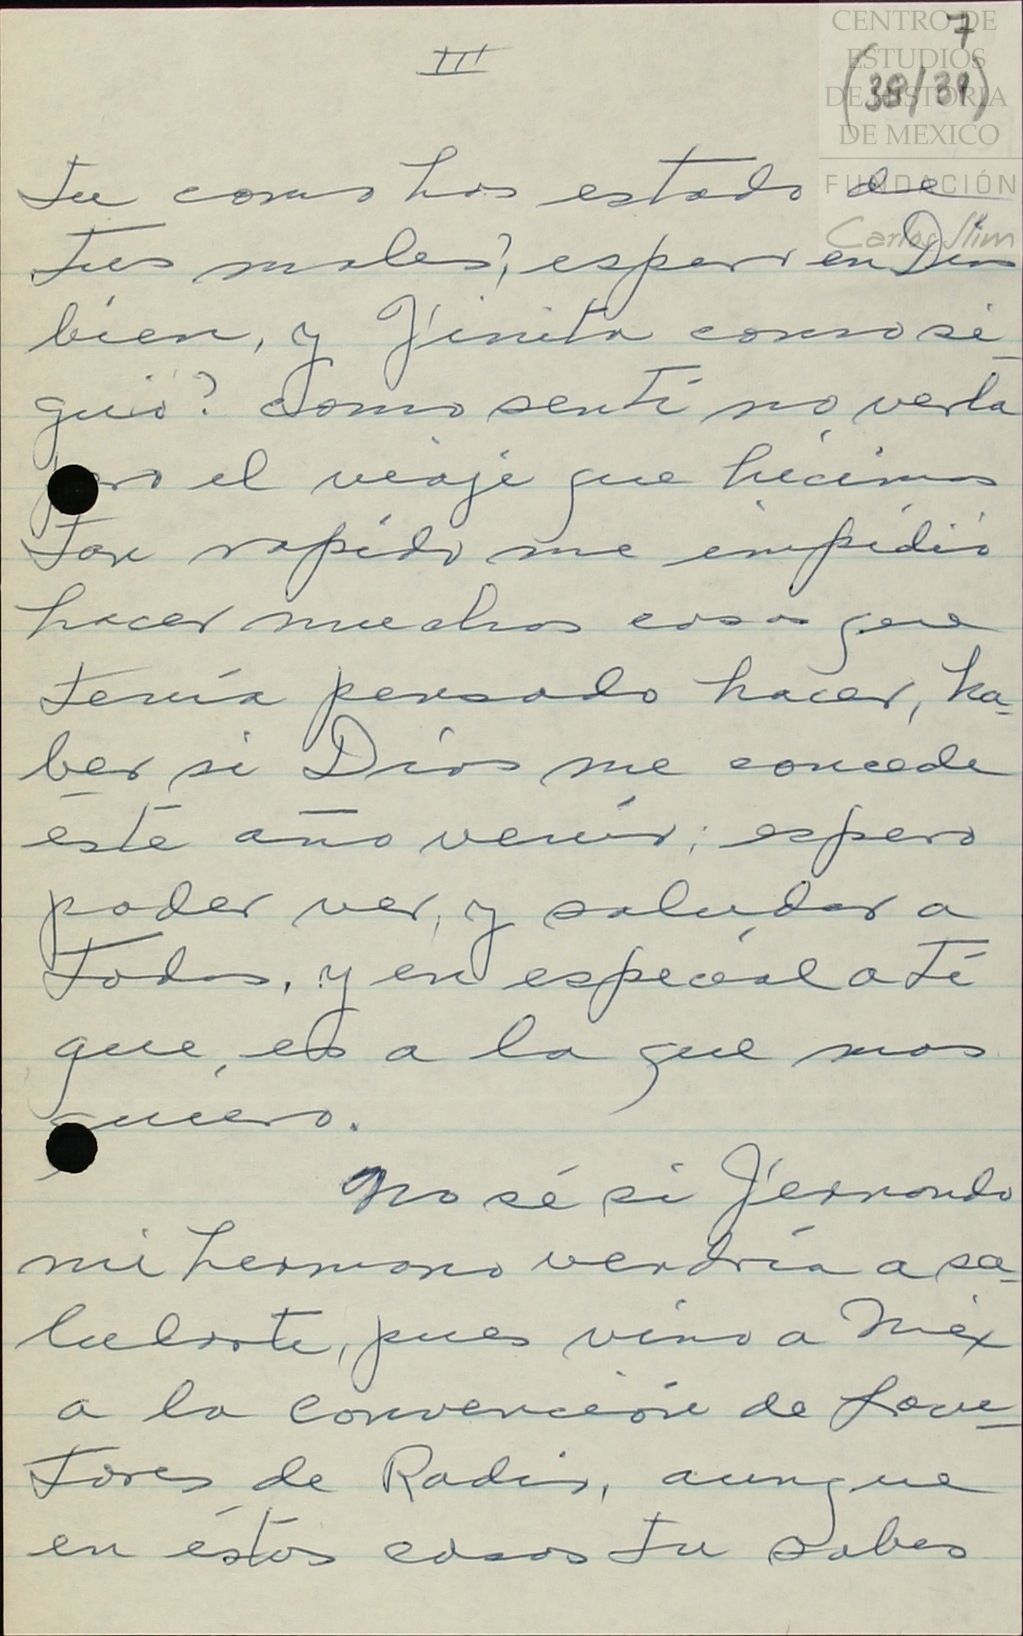 III
7
(38/39)
CENTRO DE
ESTUDIOS
DE HISTORIA
DE MEXICO
FUNDACIÓN
Carlos Slim
Tu como has estado de
tus males?, espero en Dios
bién, y Finita como si-
guió? como sentí no verla
pero el viaje que hicimos
tan rapído me impidió
hacer muchas cosas que
tenía pensado hacer, ha-
ber si Dios me concede
éste año venír; espero
poder ver, y saludar a
todos, y en especíal a tí
que, es a la que mas
quiéro.
No sé si Fernando
mi hermano vendría a sa-
ludarte, pues vino a Méx
a la convención de Locu-
tores de Radio, aunque
en éstos casos tu sabes